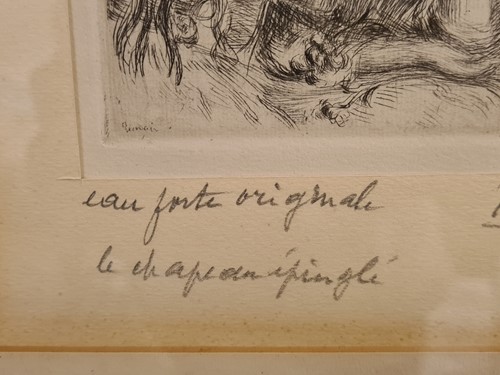 Renoir
eau forte originale
le chapeau épinglé